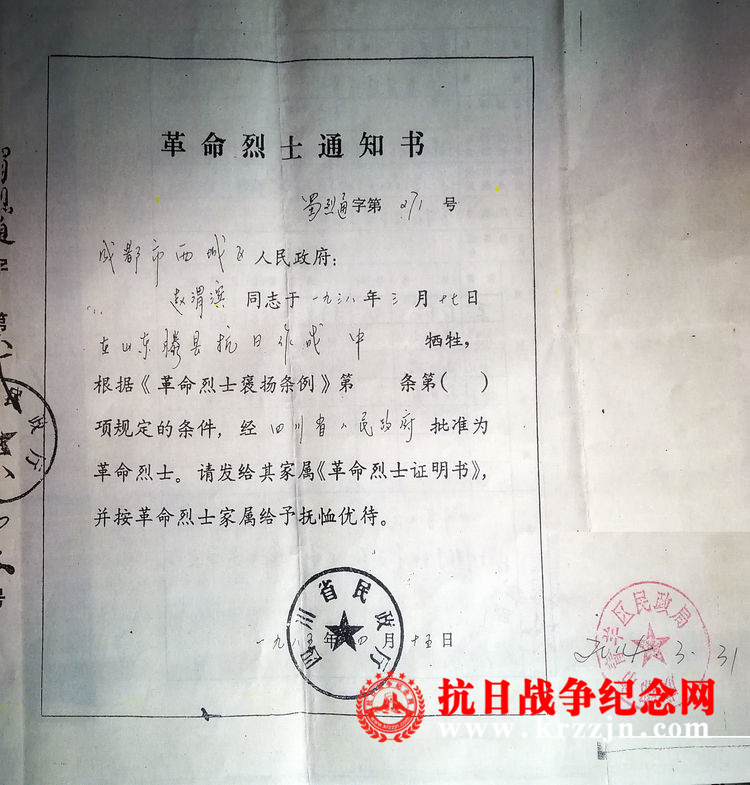 革命烈士通知书
蜀烈通字第 271 号
成都市西城区人民政府：
赵渭滨 同志于一九三八年三月十七日
在山东滕县抗日作战中 牺牲，
根据《革命烈士褒扬条例》第 条第( )
项规定的条件，经四川省人民政府批准为
革命烈士。请发给其家属《革命烈士证明书》，
并按革命烈士家属给予抚恤优待。
四川省民政厅
一九八五年四月十五日
政厅
区民政局
3.31
抗日战争纪念网
www.krzzjn.com